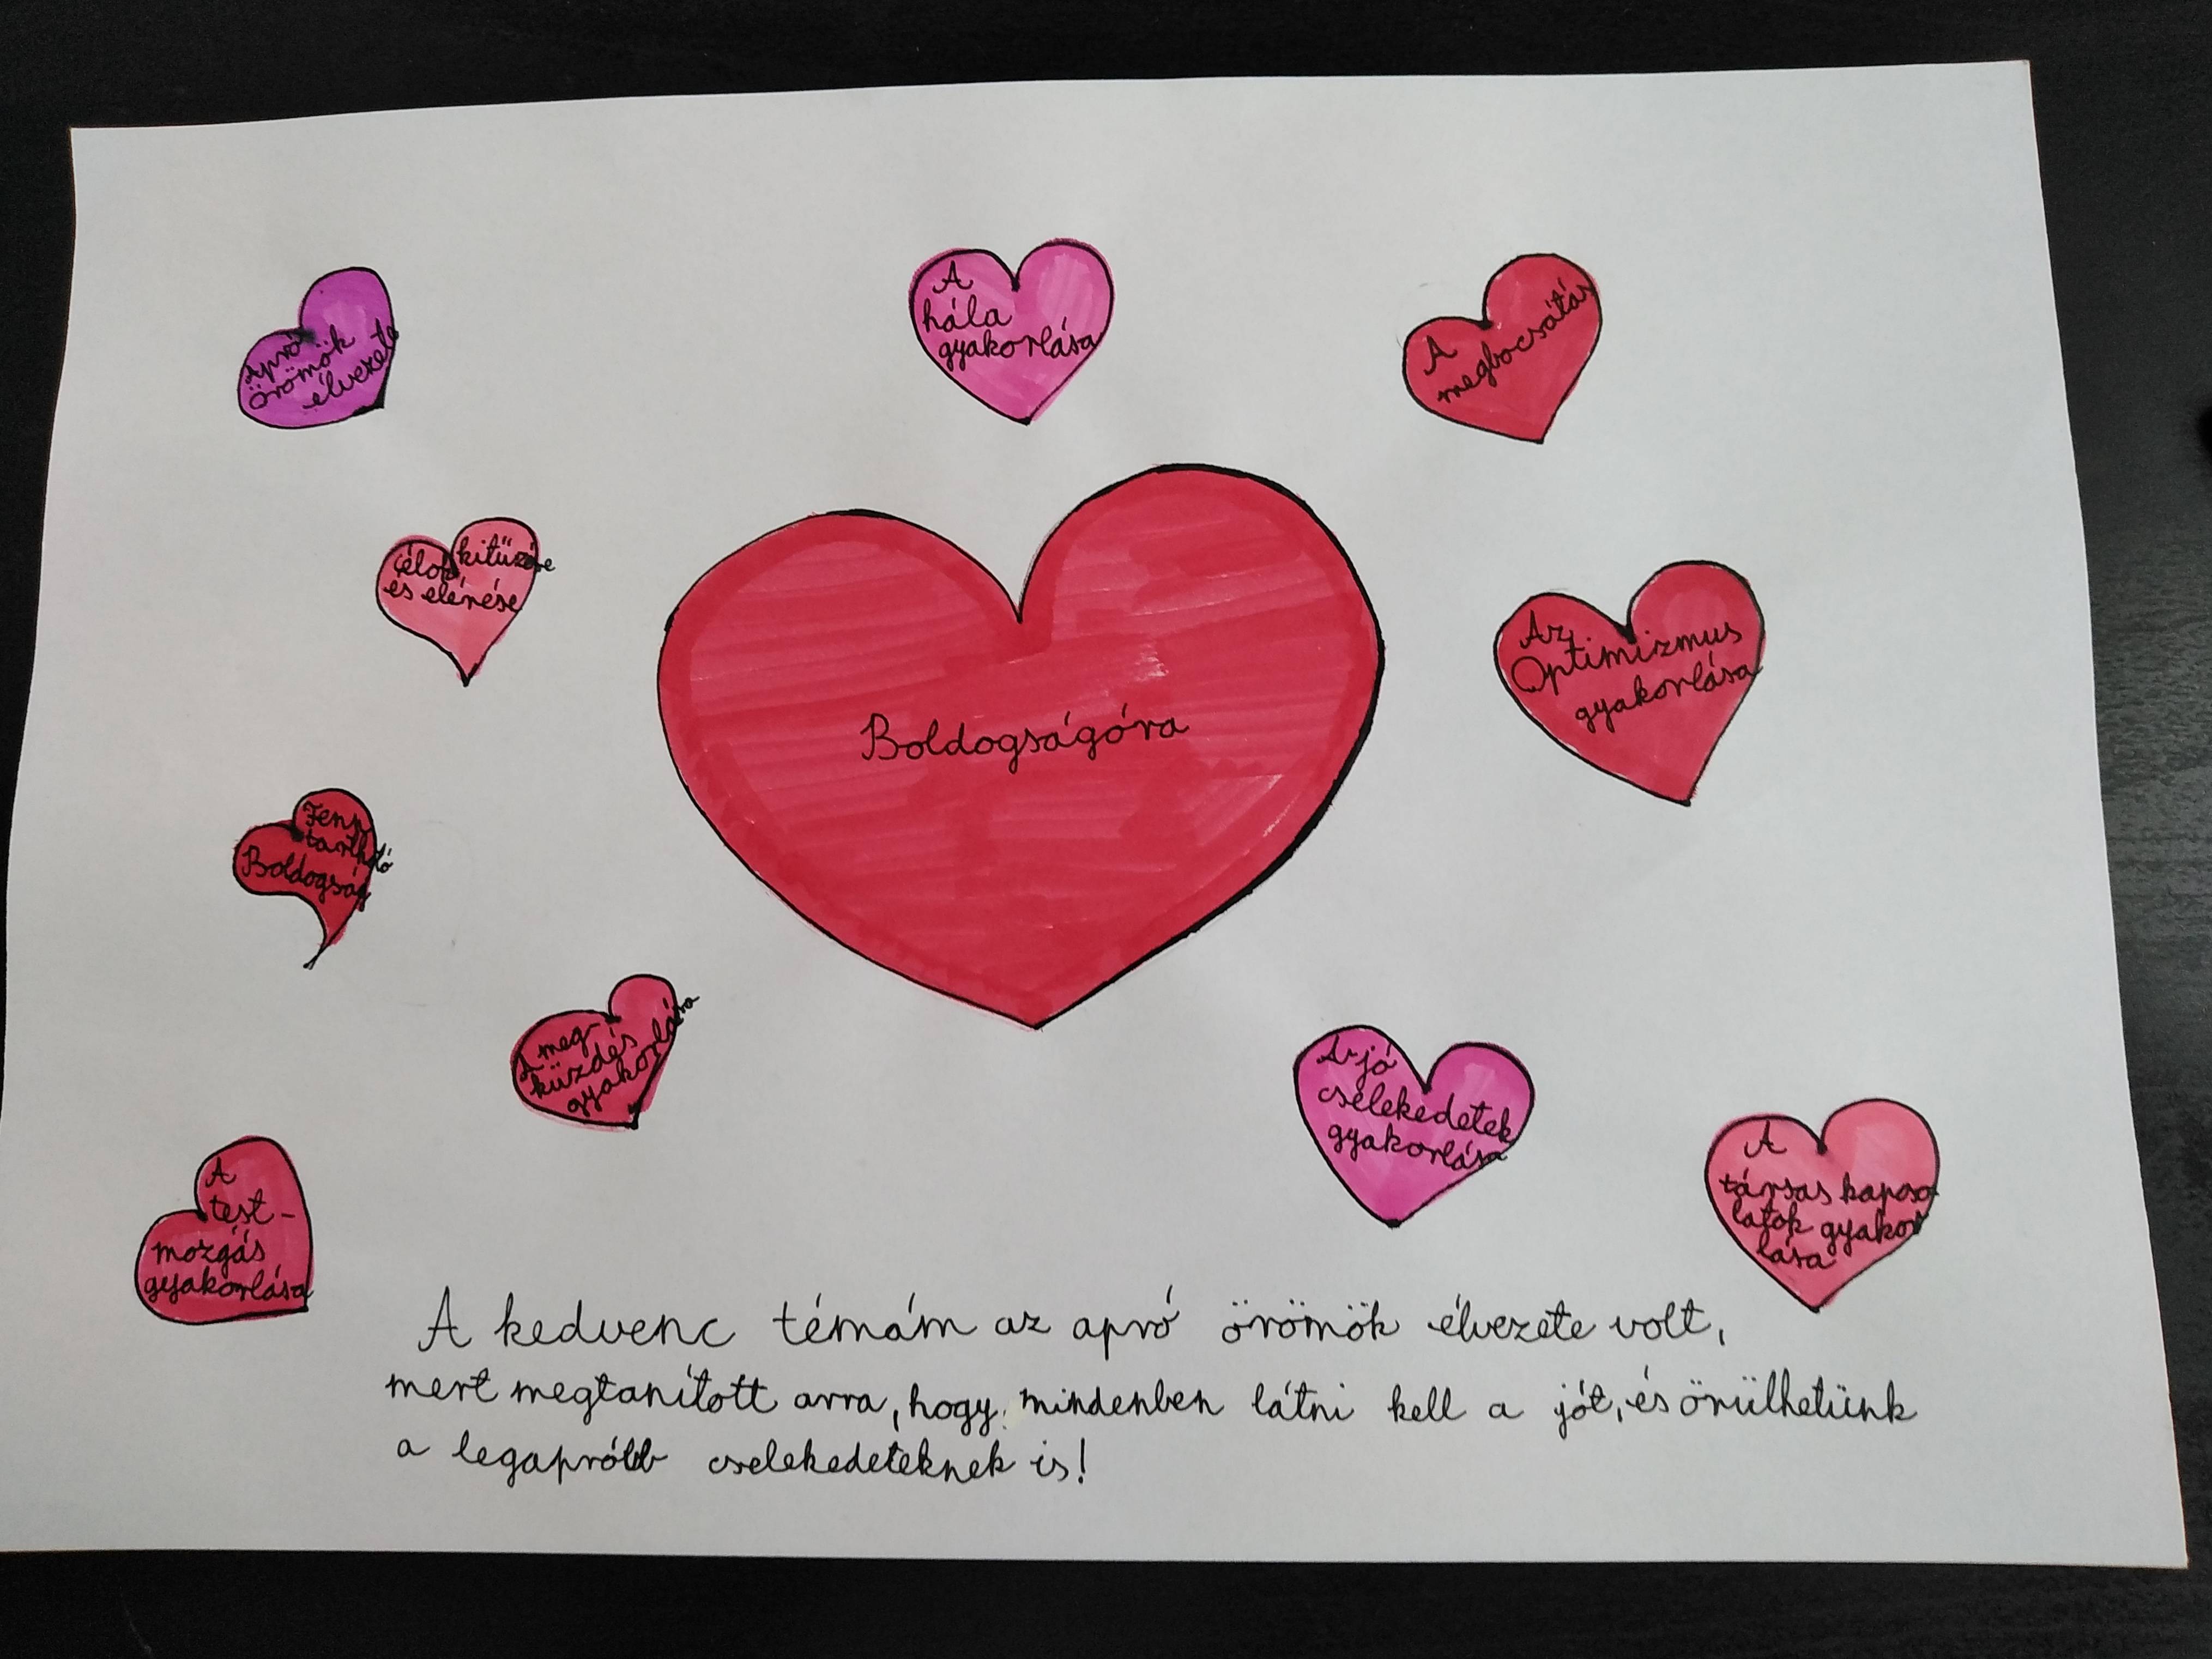 Apró
örömök
élvezete
A
hála
gyakorlása
A
megbocsátás
célok kitűzése
és elérése
Boldogságóra
Az
Optimizmus
gyakorlása
Fenn
tartható
Boldogság
A meg-
küzdés
gyakorlása
A jó
cselekedetek
gyakorlása
A
társas kapcso
latok gyakor
lása
A
test-
mozgás
gyakorlása
A kedvenc témám az apró örömök élvezete volt,
mert megtanított arra, hogy mindenben látni kell a jót, és örülhetünk
a legapróbb cselekedeteknek is!